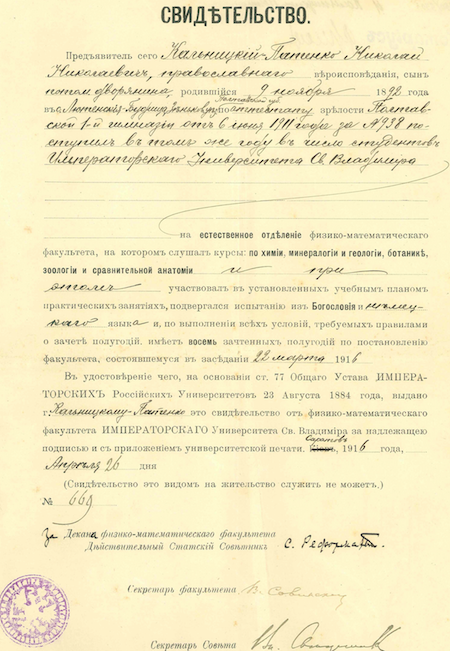 СВИДѢТЕЛЬСТВО.
Предъявитель сего Кальницкій-Патенко Николай
Николаевичъ, православнаго вѣроисповѣданія, сынъ
потом. дворянина, родившійся 9 ноября 1892 года
въ по аттестату зрѣлости Полтав-
ской 1-й гимназіи отъ 6 июня 1911 года за №938 по-
ступилъ въ томъ же году въ число студентовъ
Императорскаго Университета Св. Владиміра
на естественное отдѣленіе физико-математическаго
факультета, на которомъ слушалъ курсы: по химіи, минералогіи и геологіи, ботаникѣ,
зоологіи и сравнительной анатоміи и при
этомъ участвовалъ въ установленныхъ учебнымъ планомъ
практическихъ занятіяхъ, подвергался испытанію изъ Богословія и нѣмец-
каго языка и, по выполненіи всѣхъ условій, требуемыхъ правилами
о зачетѣ полугодій, имѣетъ восемь зачтенныхъ полугодій по постановленію
факультета, состоявшемуся въ засѣданіи 22 марта 1916
Въ удостовѣреніе чего, на основаніи ст. 77 Общаго Устава ИМПЕРА-
ТОРСКИХЪ Россійскихъ Университетовъ 23 Августа 1884 года, выдано
г. Кальницкому-Патенко это свидѣтельство отъ физико-математическаго
факультета ИМПЕРАТОРСКАГО Университета Св. Владиміра за надлежащею
подписью и съ приложеніемъ университетской печати. Саратовъ, 1916 года,
Апрѣля 26 дня
(Свидѣтельство это видомъ на жительство служить не можетъ.)
№ 669
За Декана физико-математическаго факультета
Дѣйствительный Статскій Совѣтникъ С. Реформат.
Секретарь факультета
Секретарь Совѣта